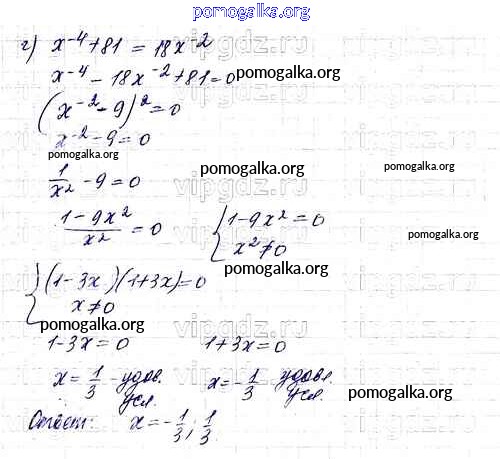 pomogalka.org
г) x⁻⁴ + 81 = 18x⁻²
x⁻⁴ - 18x⁻² + 81 = 0 pomogalka.org
(x⁻² - 9)² = 0
x⁻² - 9 = 0
pomogalka.org pomogalka.org pomogalka.org
1/x² - 9 = 0
(1 - 9x²)/x² = 0 { 1 - 9x² = 0
x² ≠ 0 pomogalka.org
{ (1 - 3x)(1 + 3x) = 0 pomogalka.org
x ≠ 0
pomogalka.org
1 - 3x = 0 1 + 3x = 0
x = 1/3 - удов. x = -1/3 удовл.
усл. усл.
pomogalka.org pomogalka.org
Ответ: x = -1/3; 1/3
vipgdz.ru